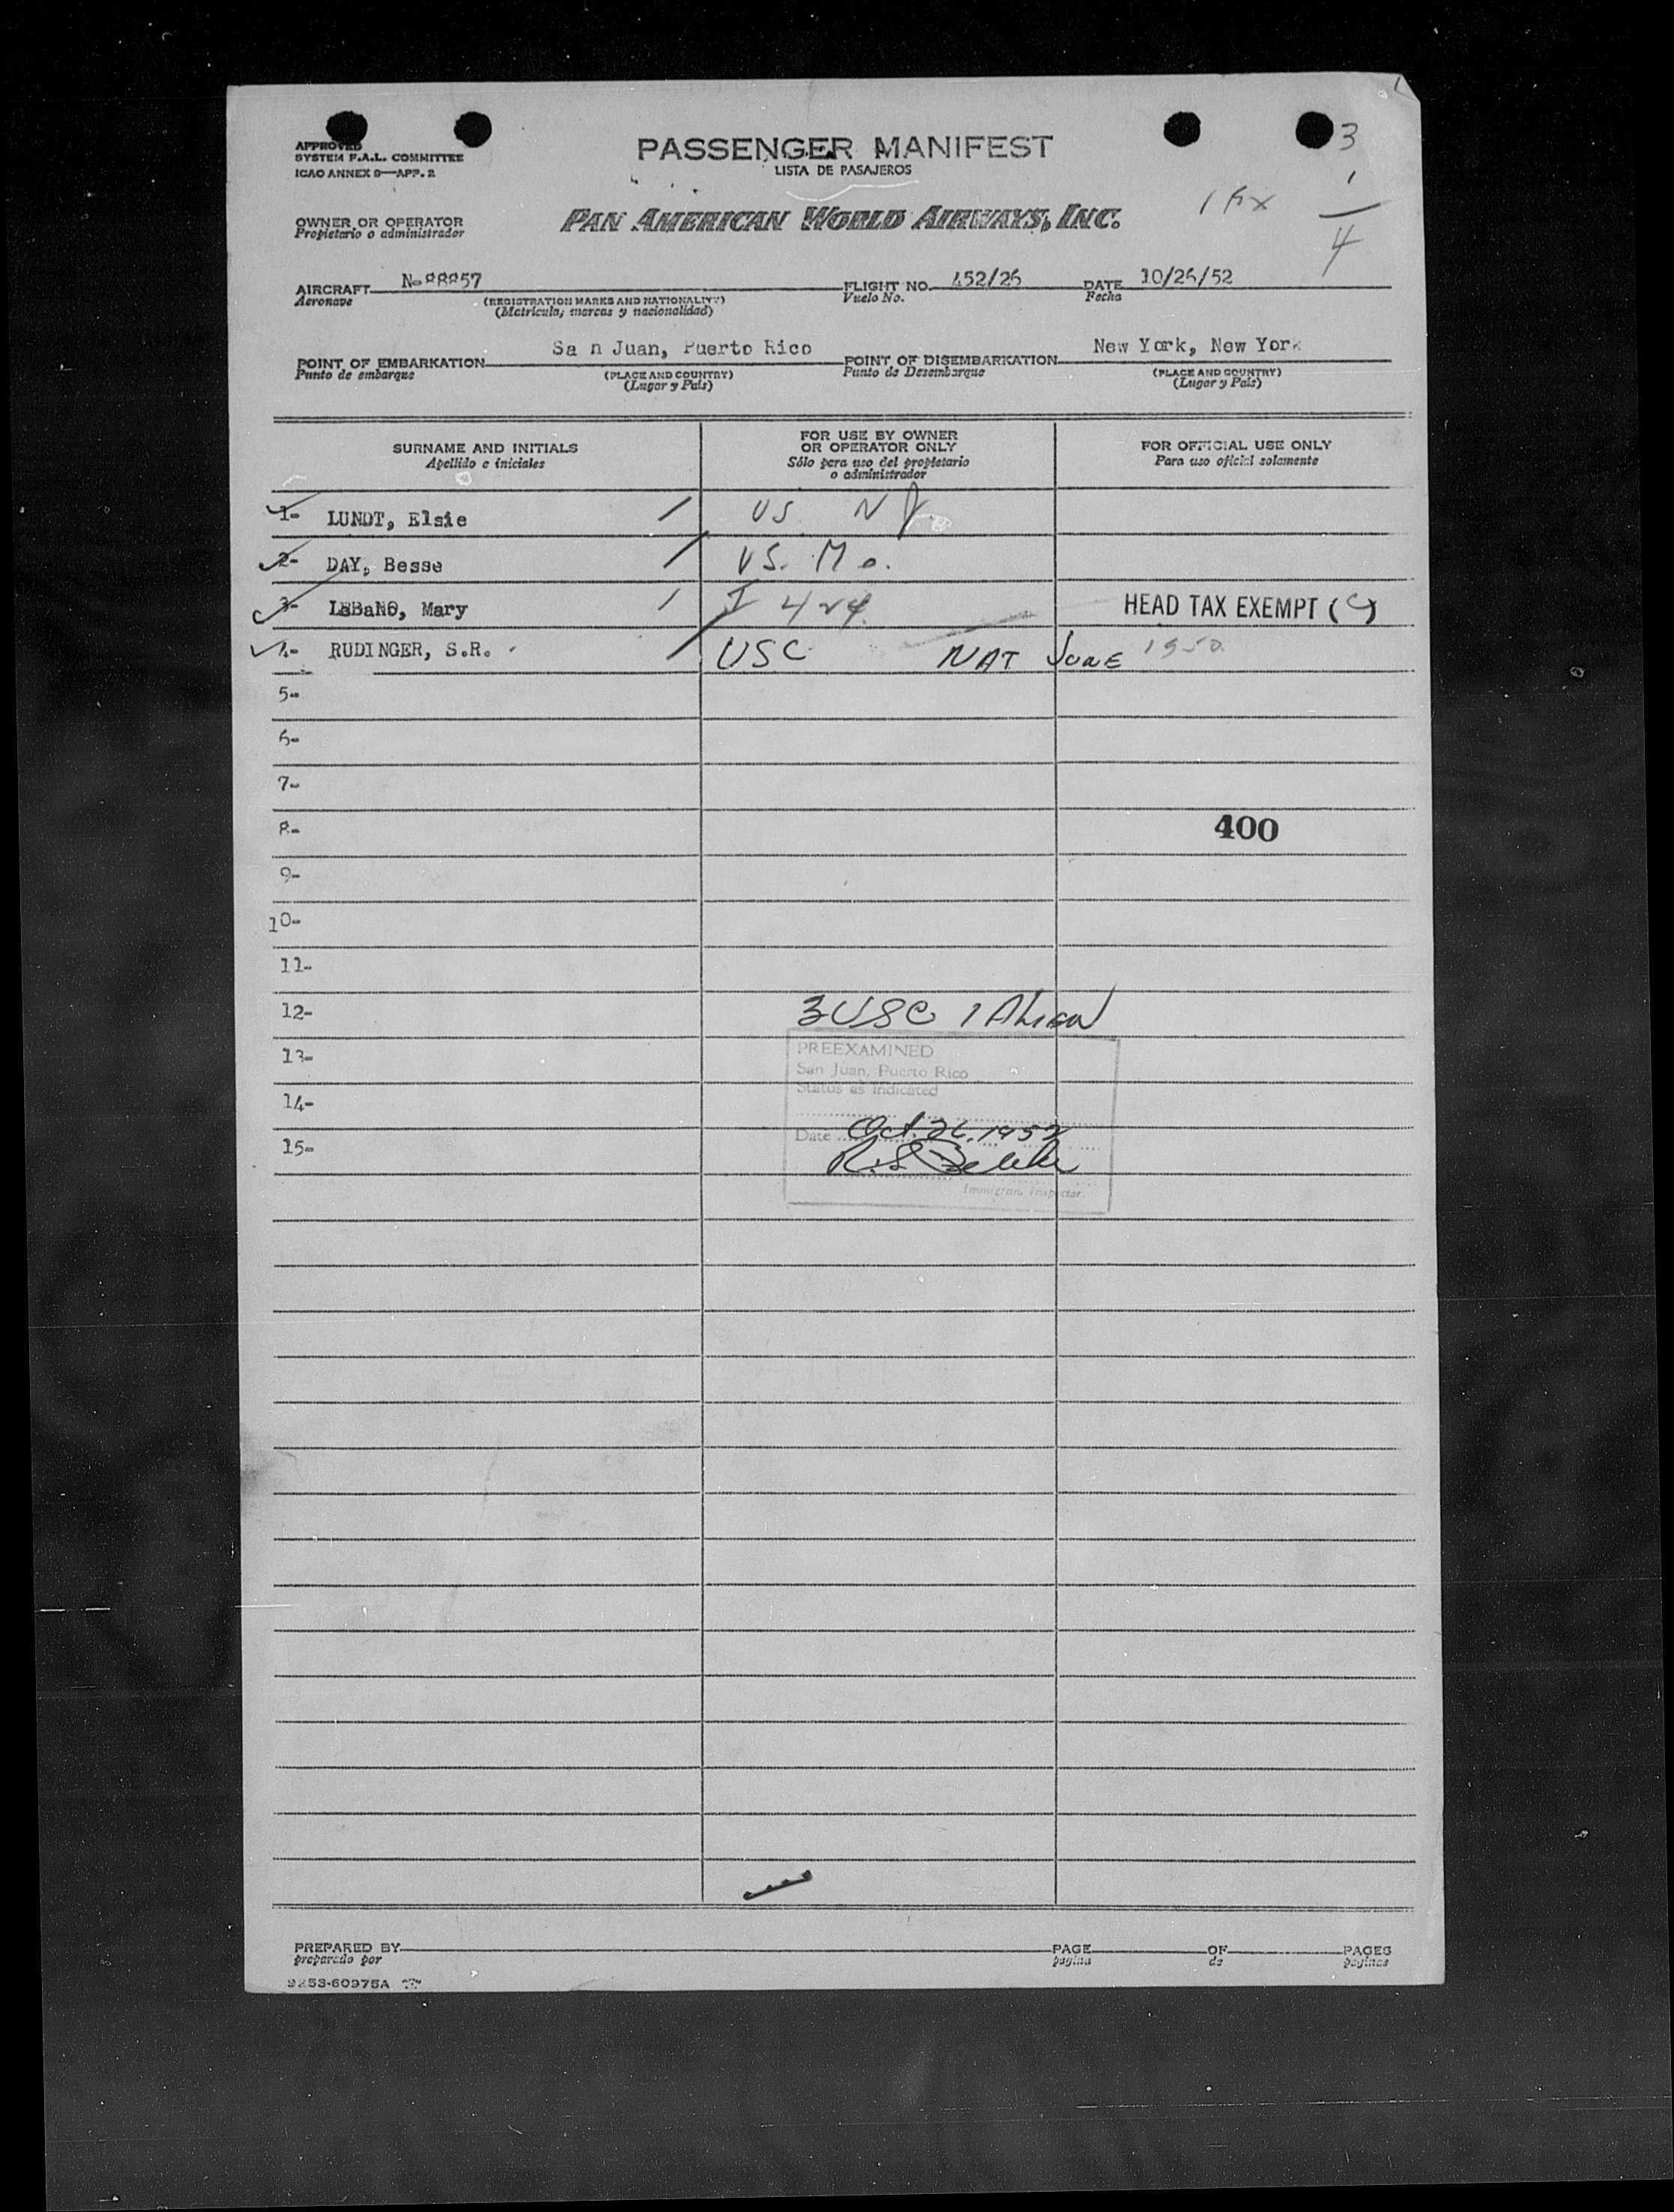 APPROVED
SYSTEM F.A.L. COMMITTEE
ICAO ANNEX 9—APP. 2
PASSENGER MANIFEST
LISTA DE PASAJEROS
3
1
4
OWNER OR OPERATOR
Propietario o administrador
PAN AMERICAN WORLD AIRWAYS, INC.
AIRCRAFT N-88857
Aeronave
(REGISTRATION MARKS AND NATIONALITY)
(Matricula, marcas y nacionalidad)
FLIGHT NO. 452/26
Vuelo No.
DATE 10/26/52
Fecha
POINT OF EMBARKATION Sa n Juan, Puerto Rico
Punto de embarque
(PLACE AND COUNTRY)
(Lugar y País)
POINT OF DISEMBARKATION New York, New York
Punto de Desembarque
(PLACE AND COUNTRY)
(Lugar y País)
SURNAME AND INITIALS
Apellido e iniciales
FOR USE BY OWNER
OR OPERATOR ONLY
Sólo para uso del propietario
o administrador
FOR OFFICIAL USE ONLY
Para uso oficial solamente
1- LUNDT, Elsie / US NY
2- DAY, Besse / US. Mo.
3- LEBaNO, Mary / I 424 HEAD TAX EXEMPT (C)
4- RUDINGER, S.R. / USC NAT JUNE 1950
5-
6-
7-
8- 400
9-
10-
11-
12- 3 USC 1 Alien
13- PREEXAMINED
San Juan, Puerto Rico
Status as indicated
14-
Date Oct. 26, 1952
15-
Immigrant Inspector.
PREPARED BY
preparado por
PAGE OF PAGES
pagina de paginas
9253-60975A